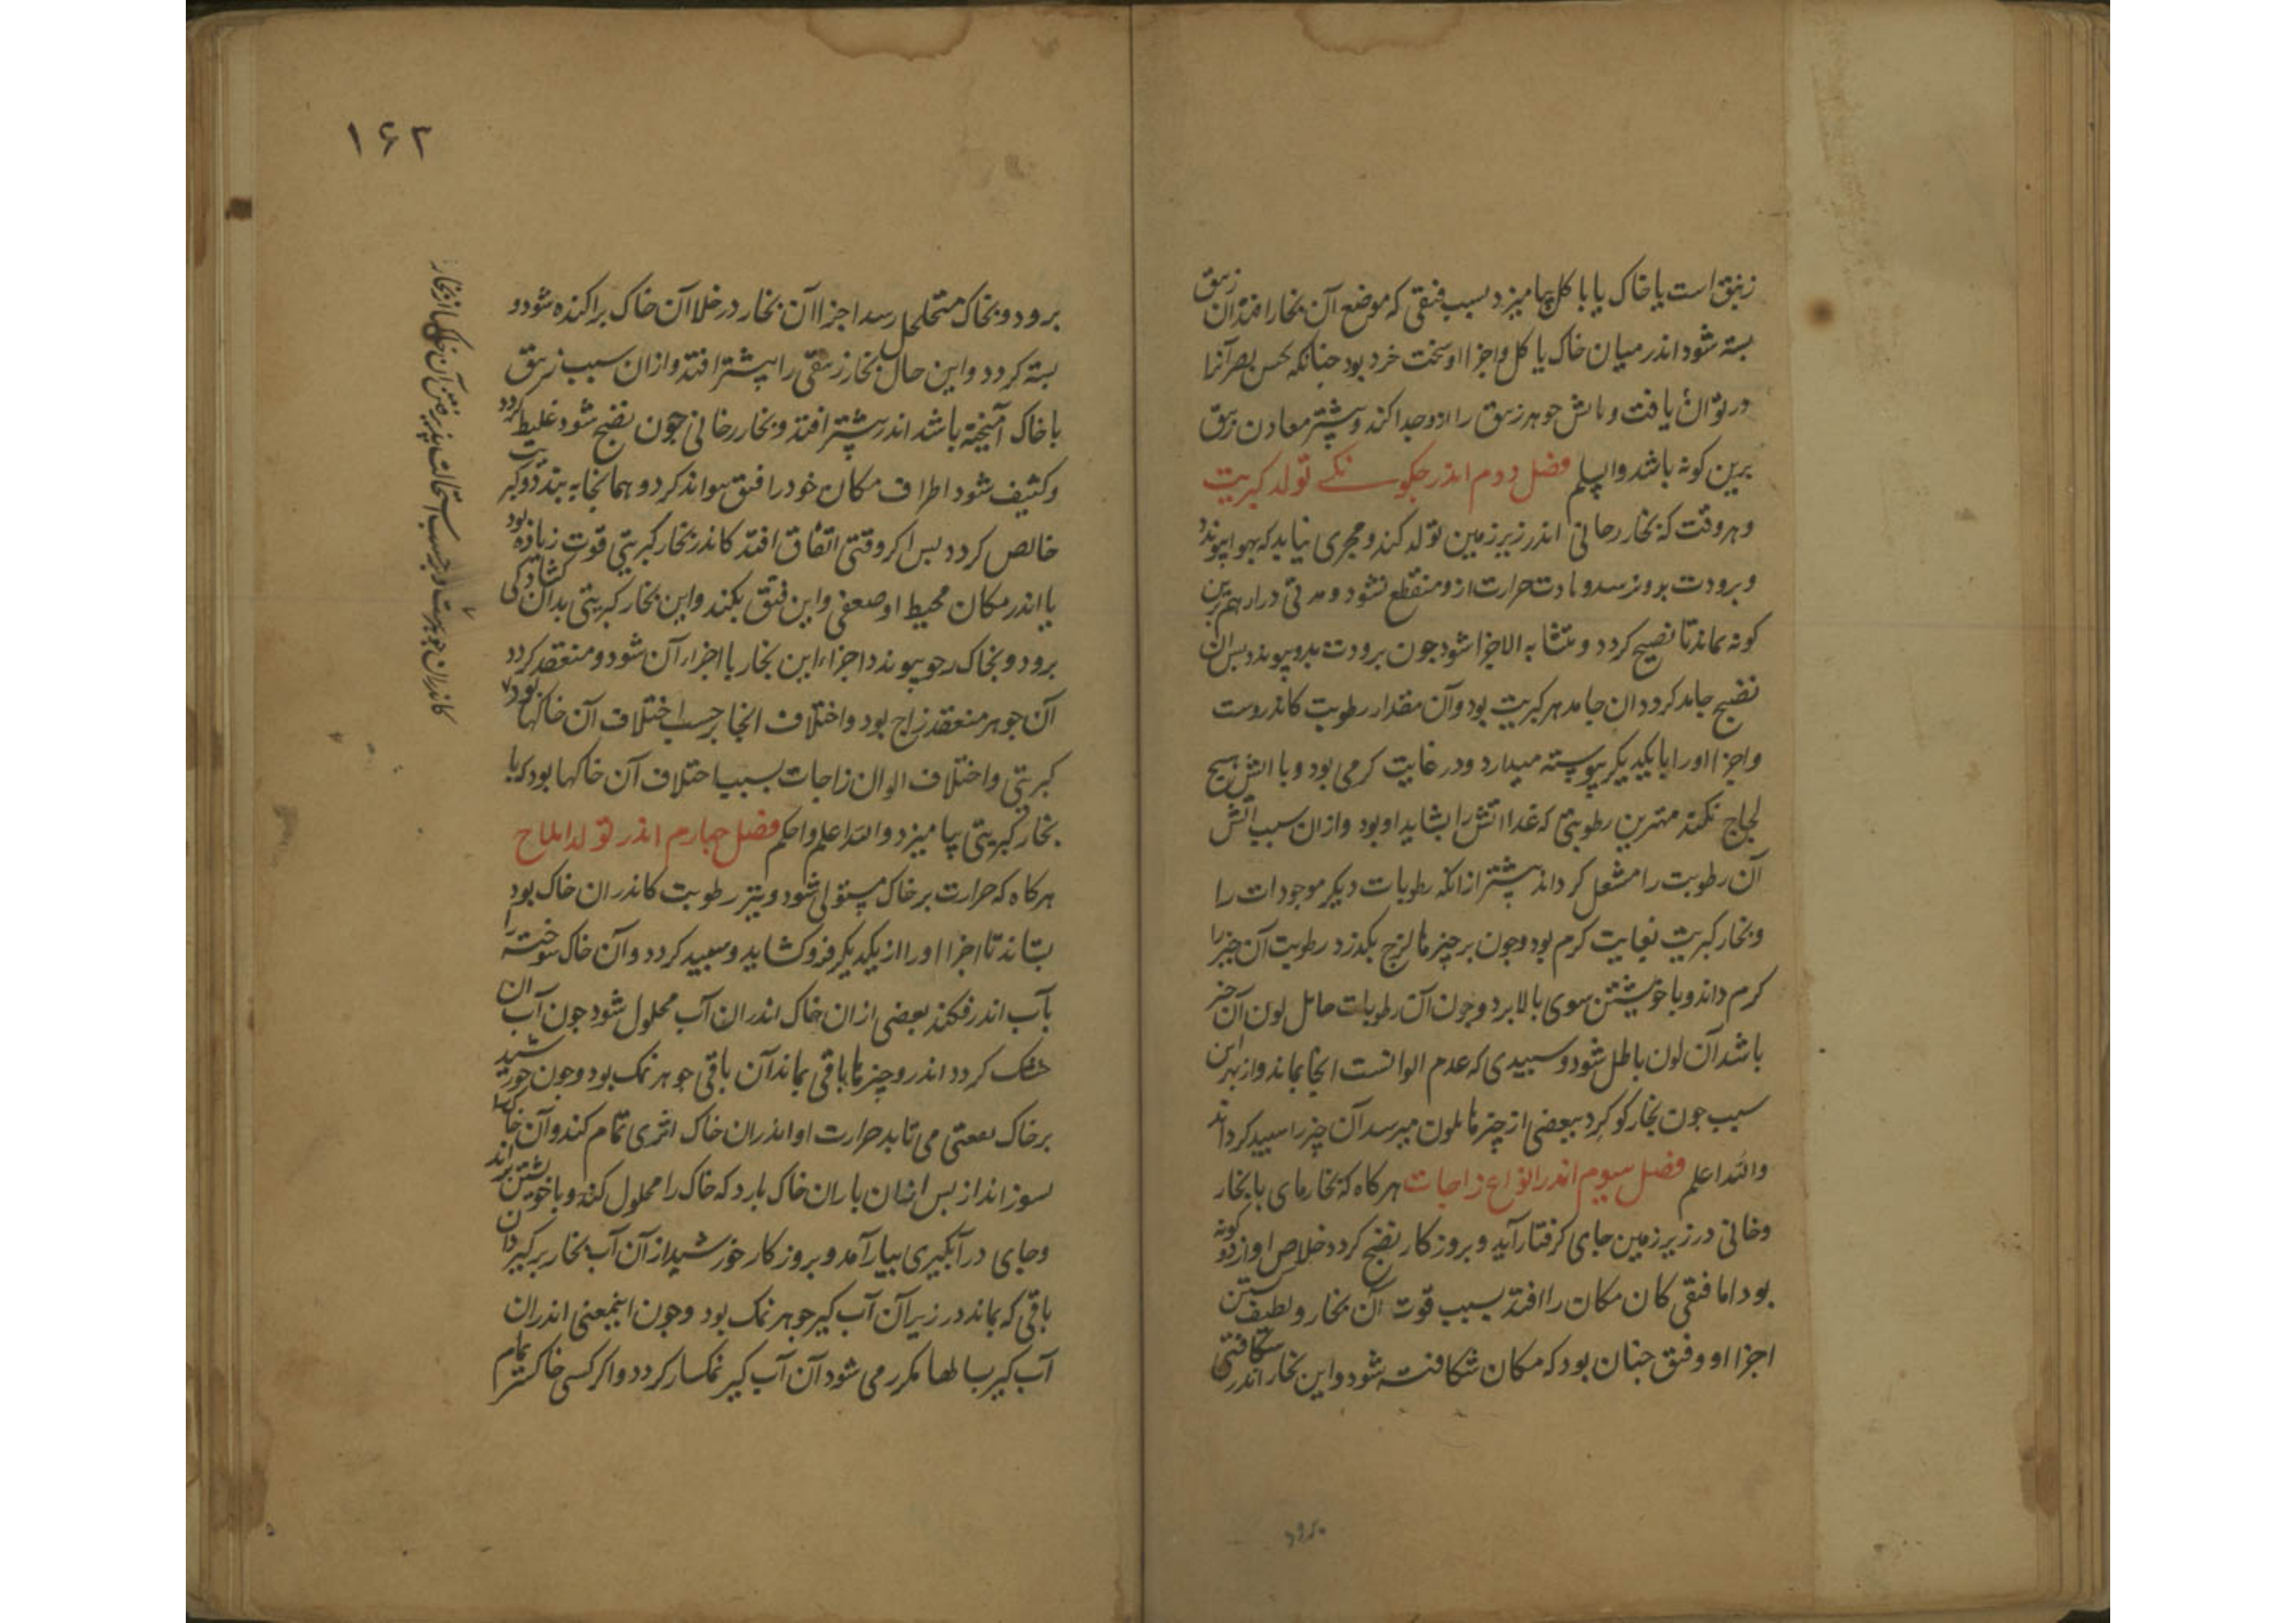 زیبق است یا خاک یا با کل بیامیزد بسبب فتقی که موضع آن بخار افتد آن زیبق
بسته شود اندر میان خاک یا کل و اجزا او سخت خرد بود جنانکه بحس بصر آنرا
در توان یافت و جوهر زیبق را ازو جدا کند و بیشتر معادن زیبق
برین کونه باشد والسلم فصل دوم اندر جکونکی تولد کبریت
و هر وقت که بخار دخانی اندر زیر زمین تولد کند و مجری نیابد که بهوا پیوندد
و برودت بدو نرسد و مادت حرارت ازو منقطع نشود و مدتی دراز هم برین
کونه بماند تا نضیج کردد و متشابه الاجزا شود جون برودت بدو پیوندد بس آن
نضیج جامد کردد ان جامد هر کبریت بود و آن مقدار رطوبت کاندروست
و اجزا او را با یکدیکر پیوسته میدارد و در غایت کرمی بود و با اتش هیچ
لجاج نکند مهترین رطوبتی که غذا اتش را بشاید او بود و ازان سبب اتش
آن رطوبت را مشعل کرداند بیشتر از انکه رطوبات دیکر موجودات را
و بخار کبریت بغایت کرم بود و جون بر چیزها لزج بکذرد رطوبت آن چیز را
کرم داند و با خویشتن سوی بالا برد و جون آن رطوبات حامل لون آن چیز
باشد آن لون باطل شود و سبیدی که عدم الوانست انجا بماند و از بهر این
سبب جون بخار کوکرد ببعضی از چیزها ملون میرسد آن چیز را سبید کرداند
والله اعلم فصل سیوم اندر انواع زاجات هرکاه که بخار مای با بخار
دخانی در زیر زمین جای کرفتار آید و بروزکار نضج کردد خلاص او از دو کونه
بود اما فتقی کان مکان را افتد بسبب قوت آن بخار و لطیف
اجزا او و فتق جنان بود که مکان شکافته شود و این بخار اندر شکافتی
برود
۱۶۲
برود و بخاک متخلخل رسد اجزا آن بخار در خلا آن خاک براکنده شود و
بسته کردد و این حال بخار زیبقی را بیشتر افتد و ازان سبب زیبق
با خاک آمیخته باشد اندر بیشتر افتد و بخار دخانی جون نضج شود غلیظ کردد
و کثیف شود اطراف مکان خود را فتق نتواند کرد و همانجا به بندد و کبریت
خالص کردد بس اکر وقتی اتفاق افتد کاندر بخار کبریتی قوت زیاده بود
یا اندر مکان محیط او ضعفی و این فتق بکند و این بخار کبریتی بدان کشادکی
برود و بخاک رخو پیوندد اجزاء این بخار با اجزاء آن شود و منعقد کردد
آن جوهر منعقد زاج بود و اختلاف انجا بر حسب اختلاف آن خاکها بود
کبریتی و اختلاف الوان زاجات بسبب اختلاف آن خاکها بود که با
بخار کبریتی بیامیزد والله اعلم و احکم فصل جهارم اندر تولد املاح
هرکاه که حرارت بر خاک مستولی شود و بتیز رطوبت کاندران خاک بود
بستاند تا اجزا او را از یکدیکر فرو کشاید و سبید کردد و آن خاک سوخته را
بآب اندر فکنند بعضی ازان خاک اندران آب محلول شود جون آب ان
خشک کردد اندرو چیزها باقی بماند آن باقی جوهر نمک بود و جون خورشید
بر خاک بقعتی می تابد حرارت او اندران خاک اثری تمام کند و آن خاکها
بسوزاند از بس ان باران خاک بارد که خاک را محلول کند و با خویشتن براند
و جای در آبکیری بیار آمد و بروزکار خورشید از آن آب بخار برکیرد ان
باقی که بماند در زیر آن آب کیر جوهر نمک بود و جون اینمعنی اندران
آب کیر بسالها مکرر می شود آن آب کیر نمکسار کردد و اکر کسی خاکستر تمام
کاندران جوهرست و بر حسب استحالت پذیرفتن آن خاکها از بخار